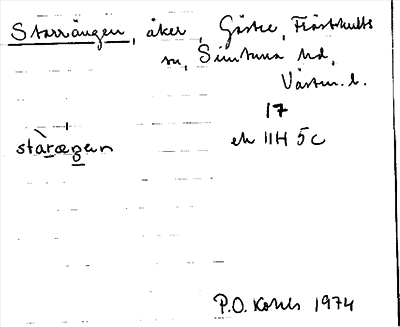 Starrängen, åker, Gårtre, Frösthults
sn, Simtuna hd,
Västm. l.
17
ek 11H 5c
stàrægen
P.O. Kohls 1974